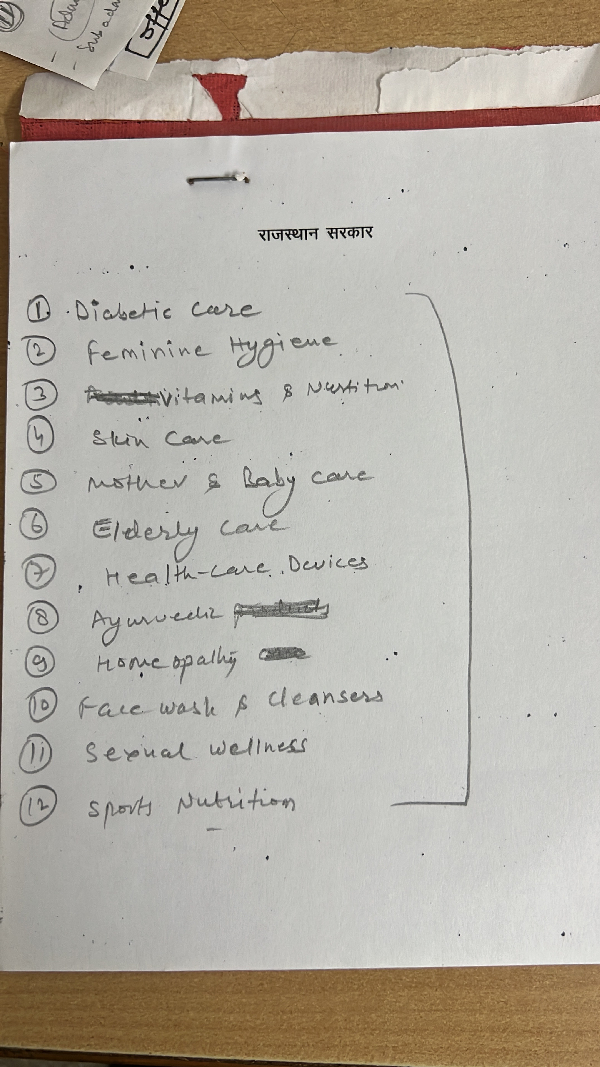 Sub ad
राजस्थान सरकार
① Diabetic Care
② Feminine Hygiene
③ Vitamins & Nutrition
④ Skin Care
⑤ Mother & Baby care
⑥ Elderly Care
⑦ Health-care Devices
⑧ Ayurvedic
⑨ Homeopathy
⑩ Face wash & Cleansers
⑪ Sexual wellness
⑫ Sports Nutrition